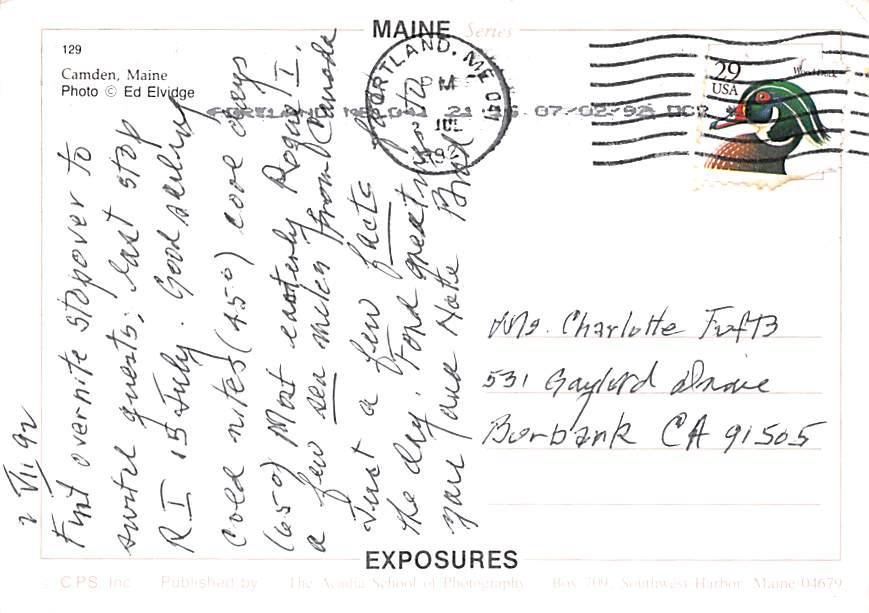 MAINE Series
129
Camden, Maine
Photo © Ed Elvidge
PORTLAND, ME 041
PM
JUL
PORTLAND ME 041 21 07/02/92
29
USA
Wood Duck
2 VII 92
First overnite stopover to
switch guests; last stop
R I 15 July. Good sailing
cold nites (45°) cool days
(65°) Most easterly
a few sea miles from Canada
Just a few facts for
the day. Fond greetings to
you and Nate
Ms. Charlotte
531 Gaylord Drive
Burbank CA 91505
EXPOSURES
© CPS, Inc Published by The Acadia School of Photography Box 709, Southwest Harbor, Maine 04679